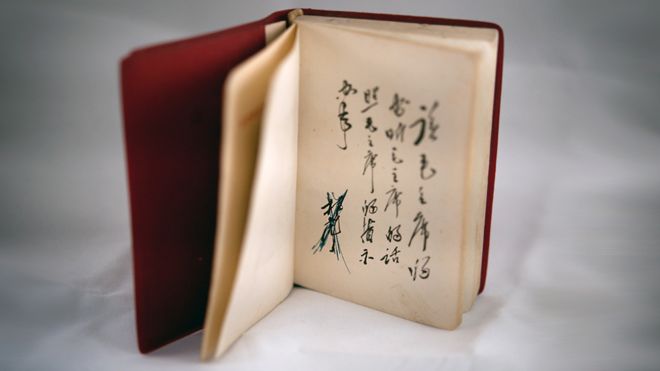 读毛主席的
书听毛主席的话
照毛主席的指示
办事